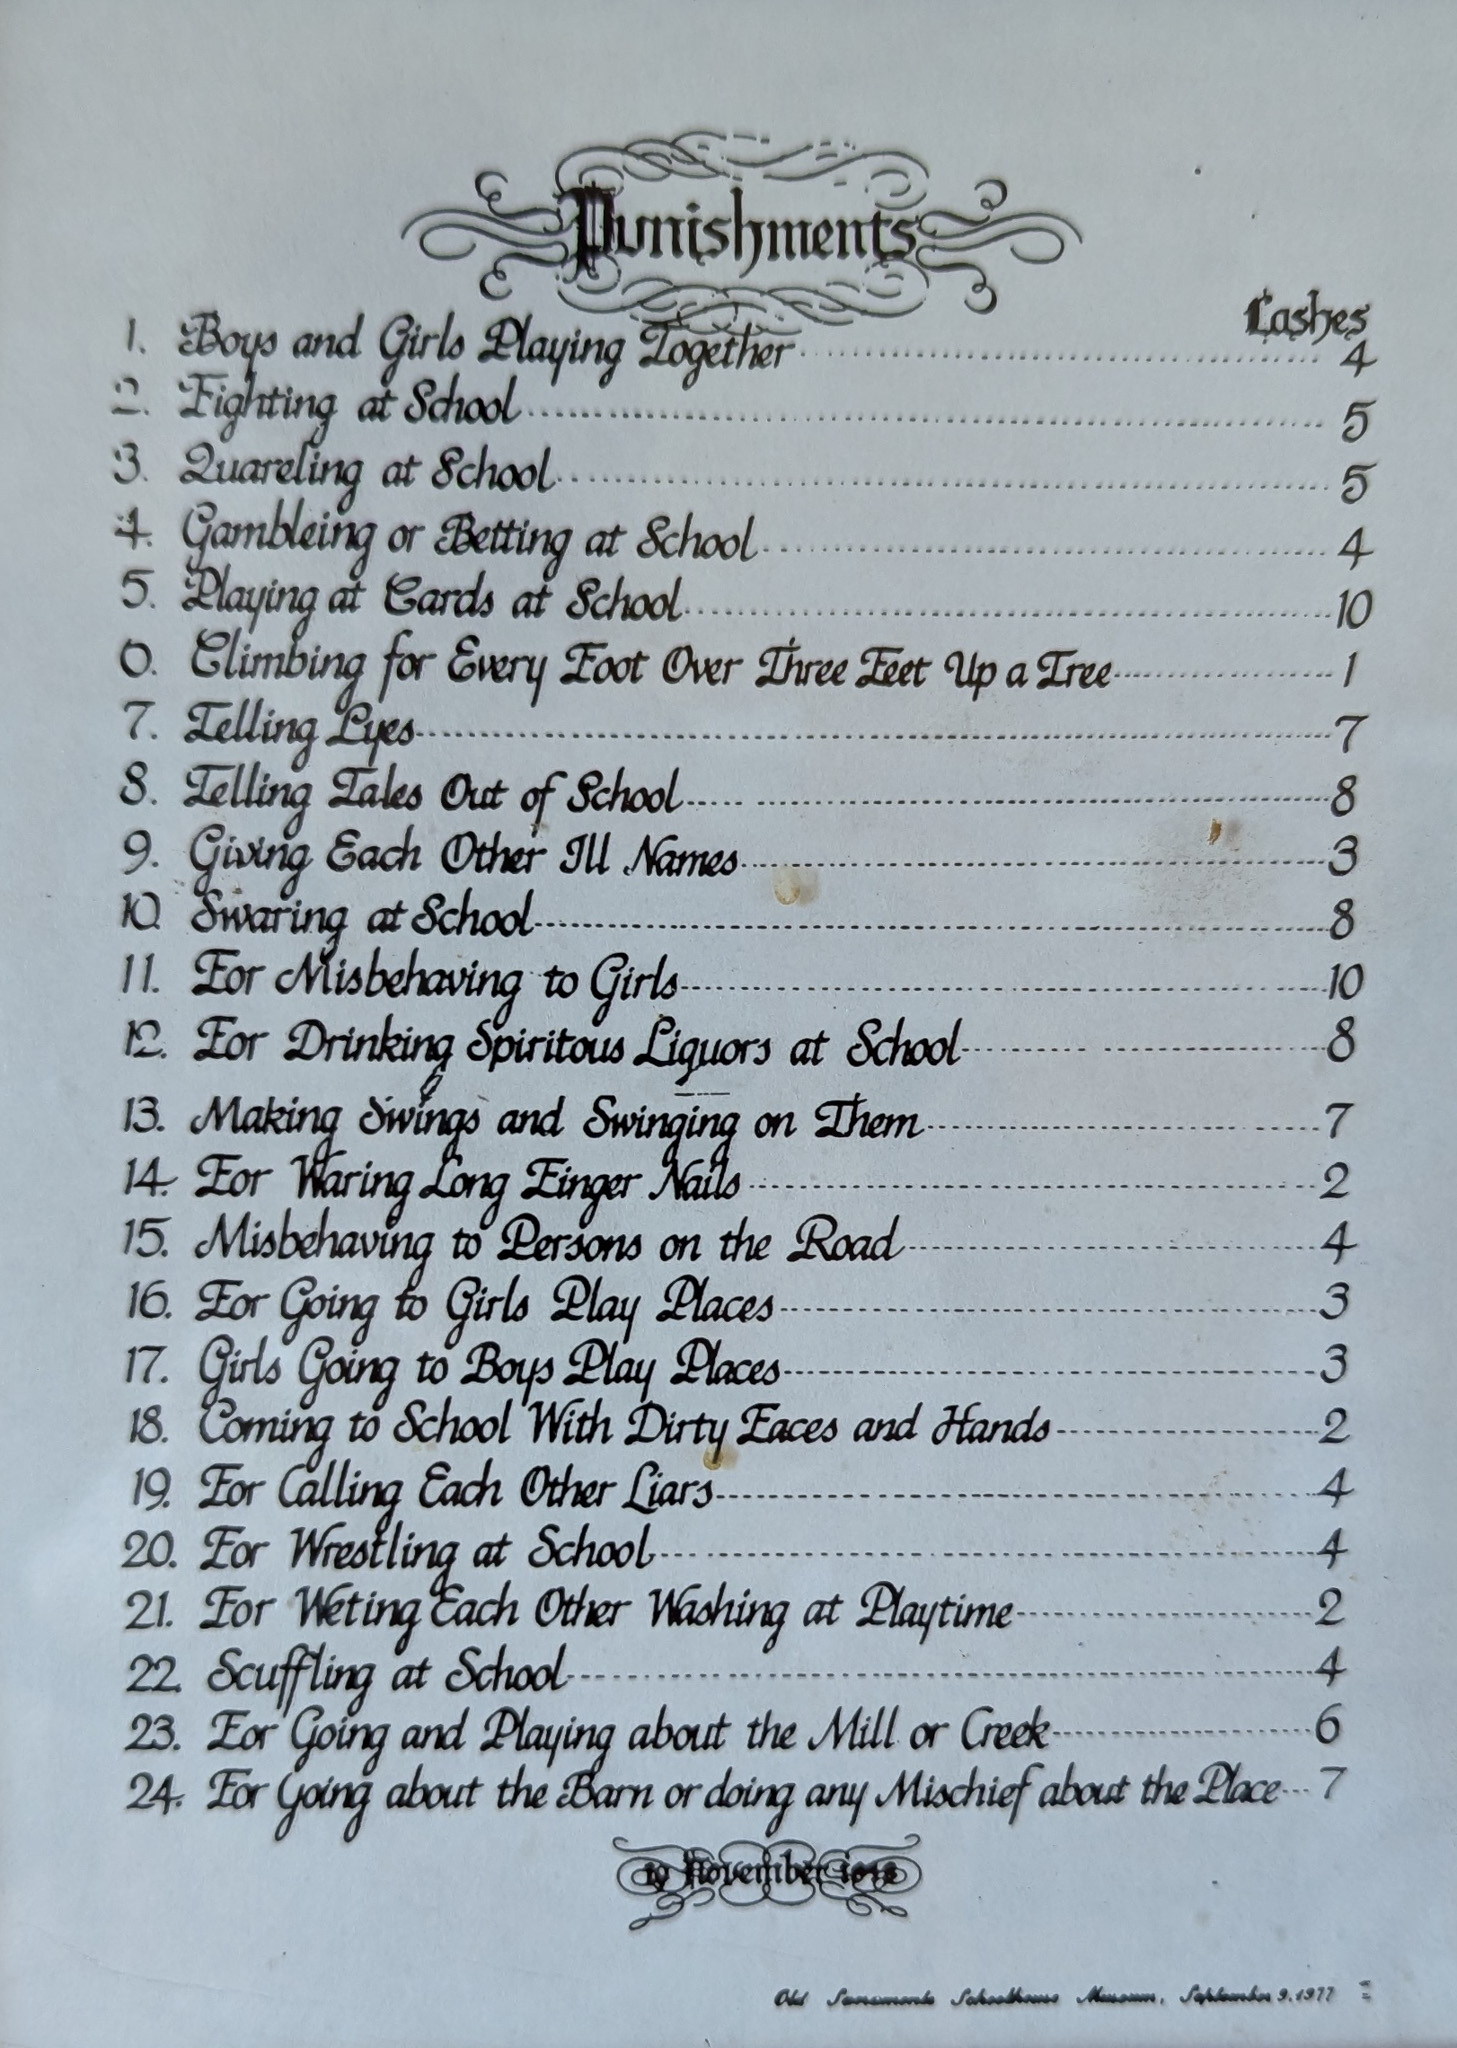 Punishments
Lashes
1. Boys and Girls Playing Together 4
2. Fighting at School 5
3. Quareling at School 5
4. Gambleing or Betting at School 4
5. Playing at Cards at School 10
6. Climbing for Every Foot Over Three Feet Up a Tree 1
7. Telling Lyes 7
8. Telling Tales Out of School 8
9. Giving Each Other Ill Names 3
10. Swaring at School 8
11. For Misbehaving to Girls 10
12. For Drinking Spiritous Liquors at School 8
13. Making Swings and Swinging on Them 7
14. For Waring Long Finger Nails 2
15. Misbehaving to Persons on the Road 4
16. For Going to Girls Play Places 3
17. Girls Going to Boys Play Places 3
18. Coming to School With Dirty Faces and Hands 2
19. For Calling Each Other Liars 4
20. For Wrestling at School 4
21. For Weting Each Other Washing at Playtime 2
22. Scuffling at School 4
23. For Going and Playing about the Mill or Creek 6
24. For Going about the Barn or doing any Mischief about the Place 7
November
Old Sacramento Schoolhouse Museum, September 9, 1977